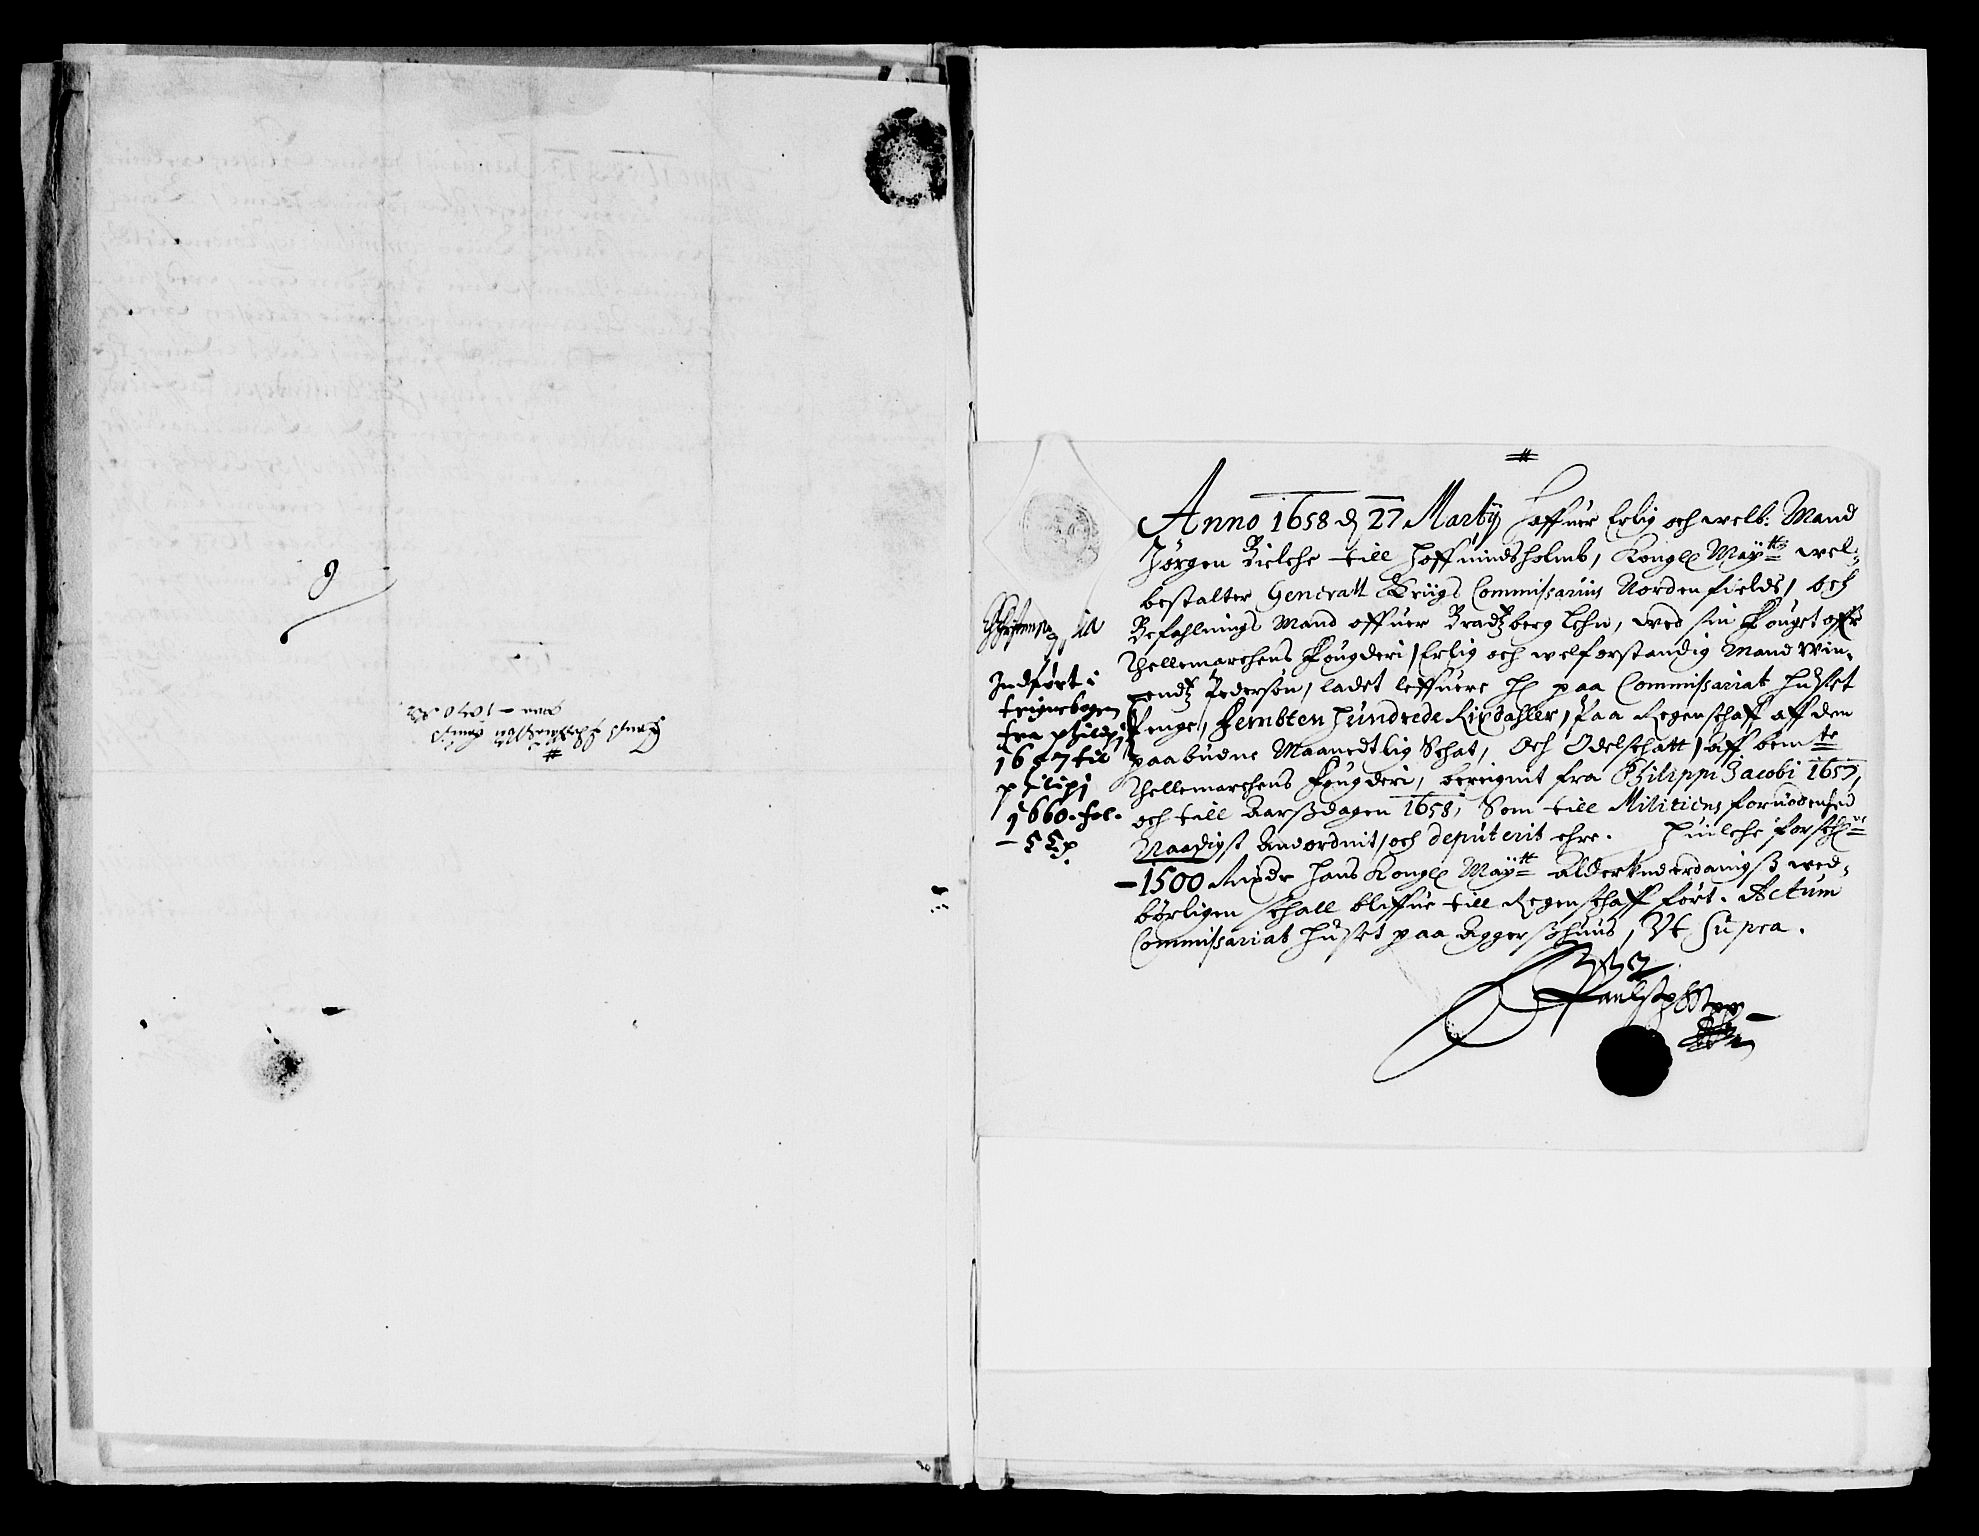 9
Anno 1658 dj 27 Martij Haffuer Erlig och welb: Mand
Jørgen Bielche till Hoffuindsholmb, Kongll Maÿtts wel-
bestalter Generall Kriigs Commissarius Nordenfields, och
Befahlnings Mand offuer Bradtzberg Lehn, wed sin Fouget offr
Thellemarchens Fougderi, Erlig och welforstandig Mand Win-
centz Pedersøn, ladet leffuere H paa Commissariat Huset
Penge, Fembten Hundrede Rixdahler, Paa Regenschaff aff den
paabudne Maanedtlig Schat, Och Odelschatt, aff bemte
Thellemarchens Fougderi, bereignit fra Philippi Jacobi 1657,
och till Aarsdagen 1658, Som till Militiens fornødenhed
Naadigst Anordnit, och deputerit ehre. Huilche forschne
1500 Rixdr Hans Kongll Maÿtt Alderunderdanigst wed-
børligen schall bliffue till Regenschaff ført. Actum
Commissariat Huset paa Aggershuus, Vt Supra.
Indført i
reignebogen
fra philipi
1657 til
philipi
1660. fol.